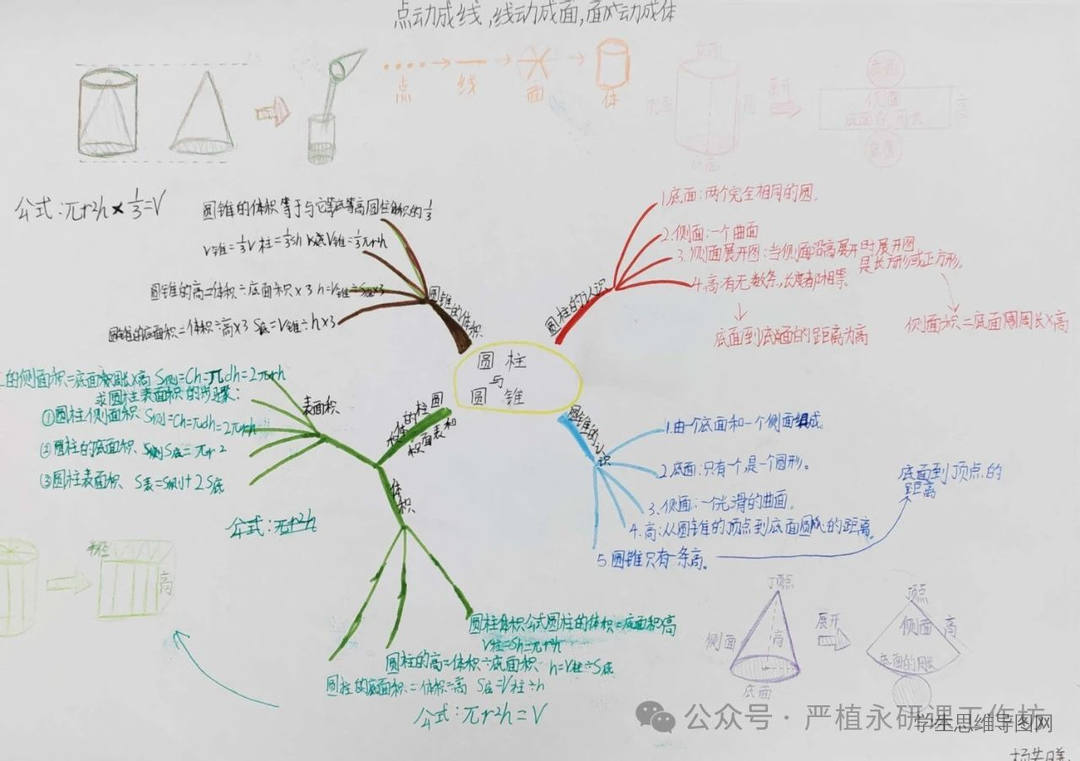 点动成线,线动成面,面动成体
点 线 面 体
底面
高
底面
展开
底面
侧面
底面的周长
高
底面
公式:πr2h×1/3=V
圆锥的体积等于与它等底等高圆柱体积的1/3
V锥=1/3V柱=1/3Sh
圆锥的高=体积÷底面积×3 h=V锥÷S底×3
圆锥的底面积=体积÷高×3 S底=V锥÷h×3
圆锥的体积
圆柱的认识
1.底面:两个完全相同的圆.
2.侧面:一个曲面
3.侧面展开图:当侧面沿高展开时展开图
是长方形或正方形.
4.高:有无数条,长度都相等.
底面到底面的距离为高
侧面积=底面周长×高
圆柱
与
圆锥
的侧面积=底面周长×高 S侧=Ch=πdh=2πrh
求圆柱表面积的步骤:
①圆柱侧面积 S侧=Ch=πdh=2πrh
②圆柱的底面积 S底=πr2
③圆柱表面积 S表=S侧+2S底
表面积
圆柱的
表面积和
体积
体积
公式:πr2h
高
圆柱体积公式圆柱的体积=底面积高
V柱=Sh=πr2h
圆柱的高=体积÷底面积 h=V柱÷S底
圆柱的底面积=体积÷高 S底=V柱÷h
公式:πr2h=V
圆锥的认识
1.由一个底面和一个侧面组成
2.底面:只有一个,是一个圆形。
3.侧面:一个光滑的曲面.
4.高:从圆锥的顶点到底面圆心的距离.
5.圆锥只有一条高。
底面到顶点的
距离
顶点
侧面
高
底面
展开
顶点
侧面
高
底面的周长
公众号·严植永研课工作坊
学生思维导图网